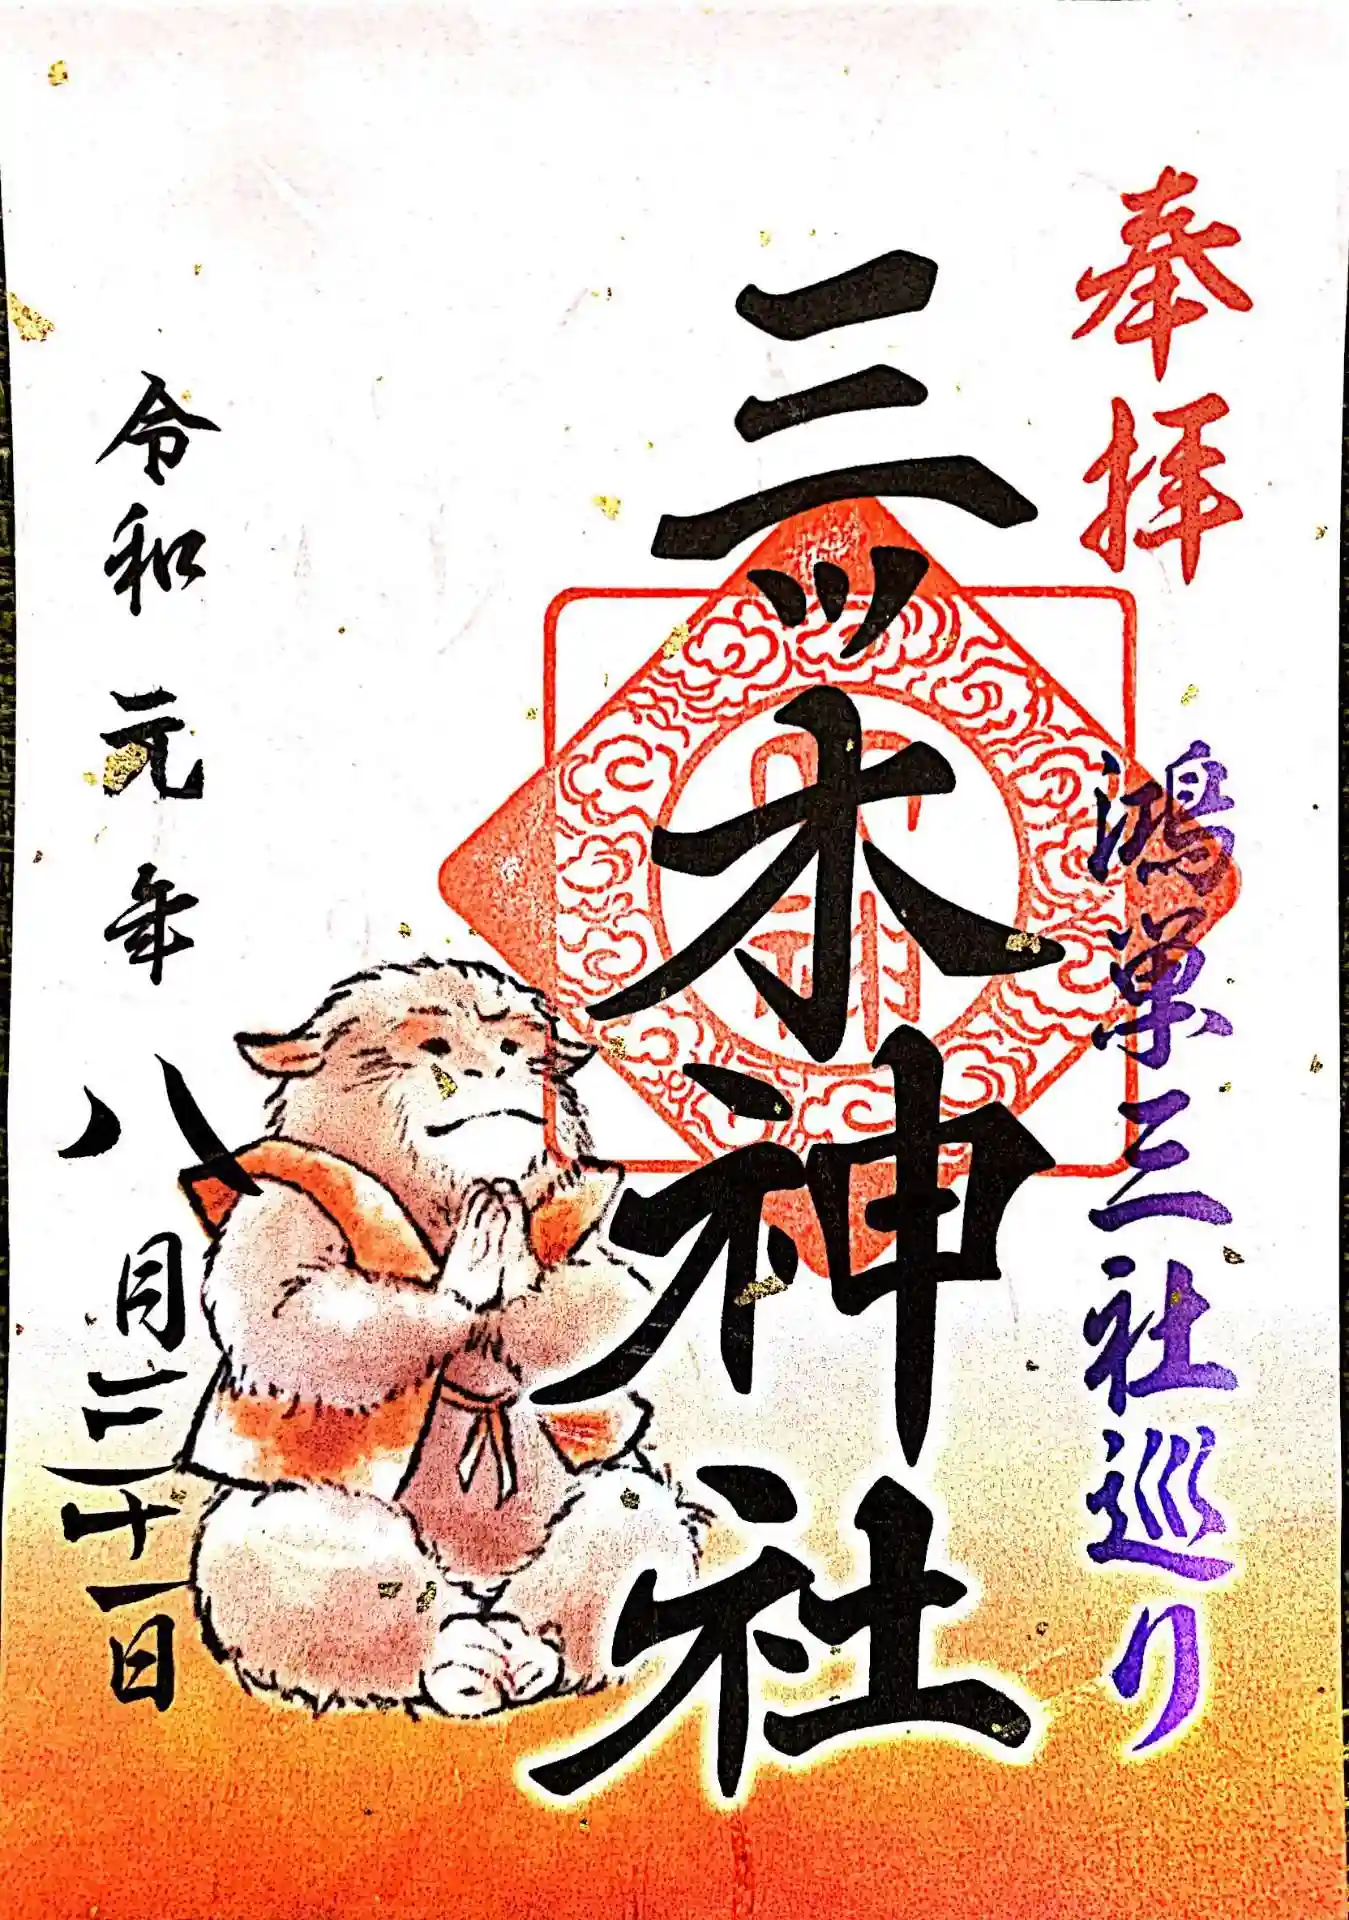 奉拝
鴻巣三社巡り
三ツ木神社
令和元年八月三十一日